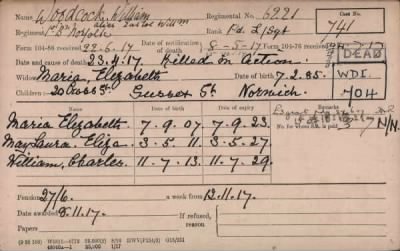 Name Woodcock, William Regimental No. 6221 Case No.
alias William 741
Regiment 1st Bn Norfolk Rank Pd. L/Sgt
Form 104-88 received 22.6.17 Date of notification of death 8-5-17 Form 104-76 received
Date and cause of death 23.4.17 Killed in Action. DEAD
Widow Maria Elizabeth 7.2.85. WDI.
Children: 20 Gusset St Norwich 704
Date of birth Date of expiry Remarks
Maria Elizabeth 7.9.07 7.9.23. No for whom N.M. N/N
May Laura Eliza. 3.5.11 3.5.27
William, Charles. 11.7.13 11.7.29.
Pension 27/6. a week from 12.11.17.
Date awarded 8.11.17.
Refused
Papers